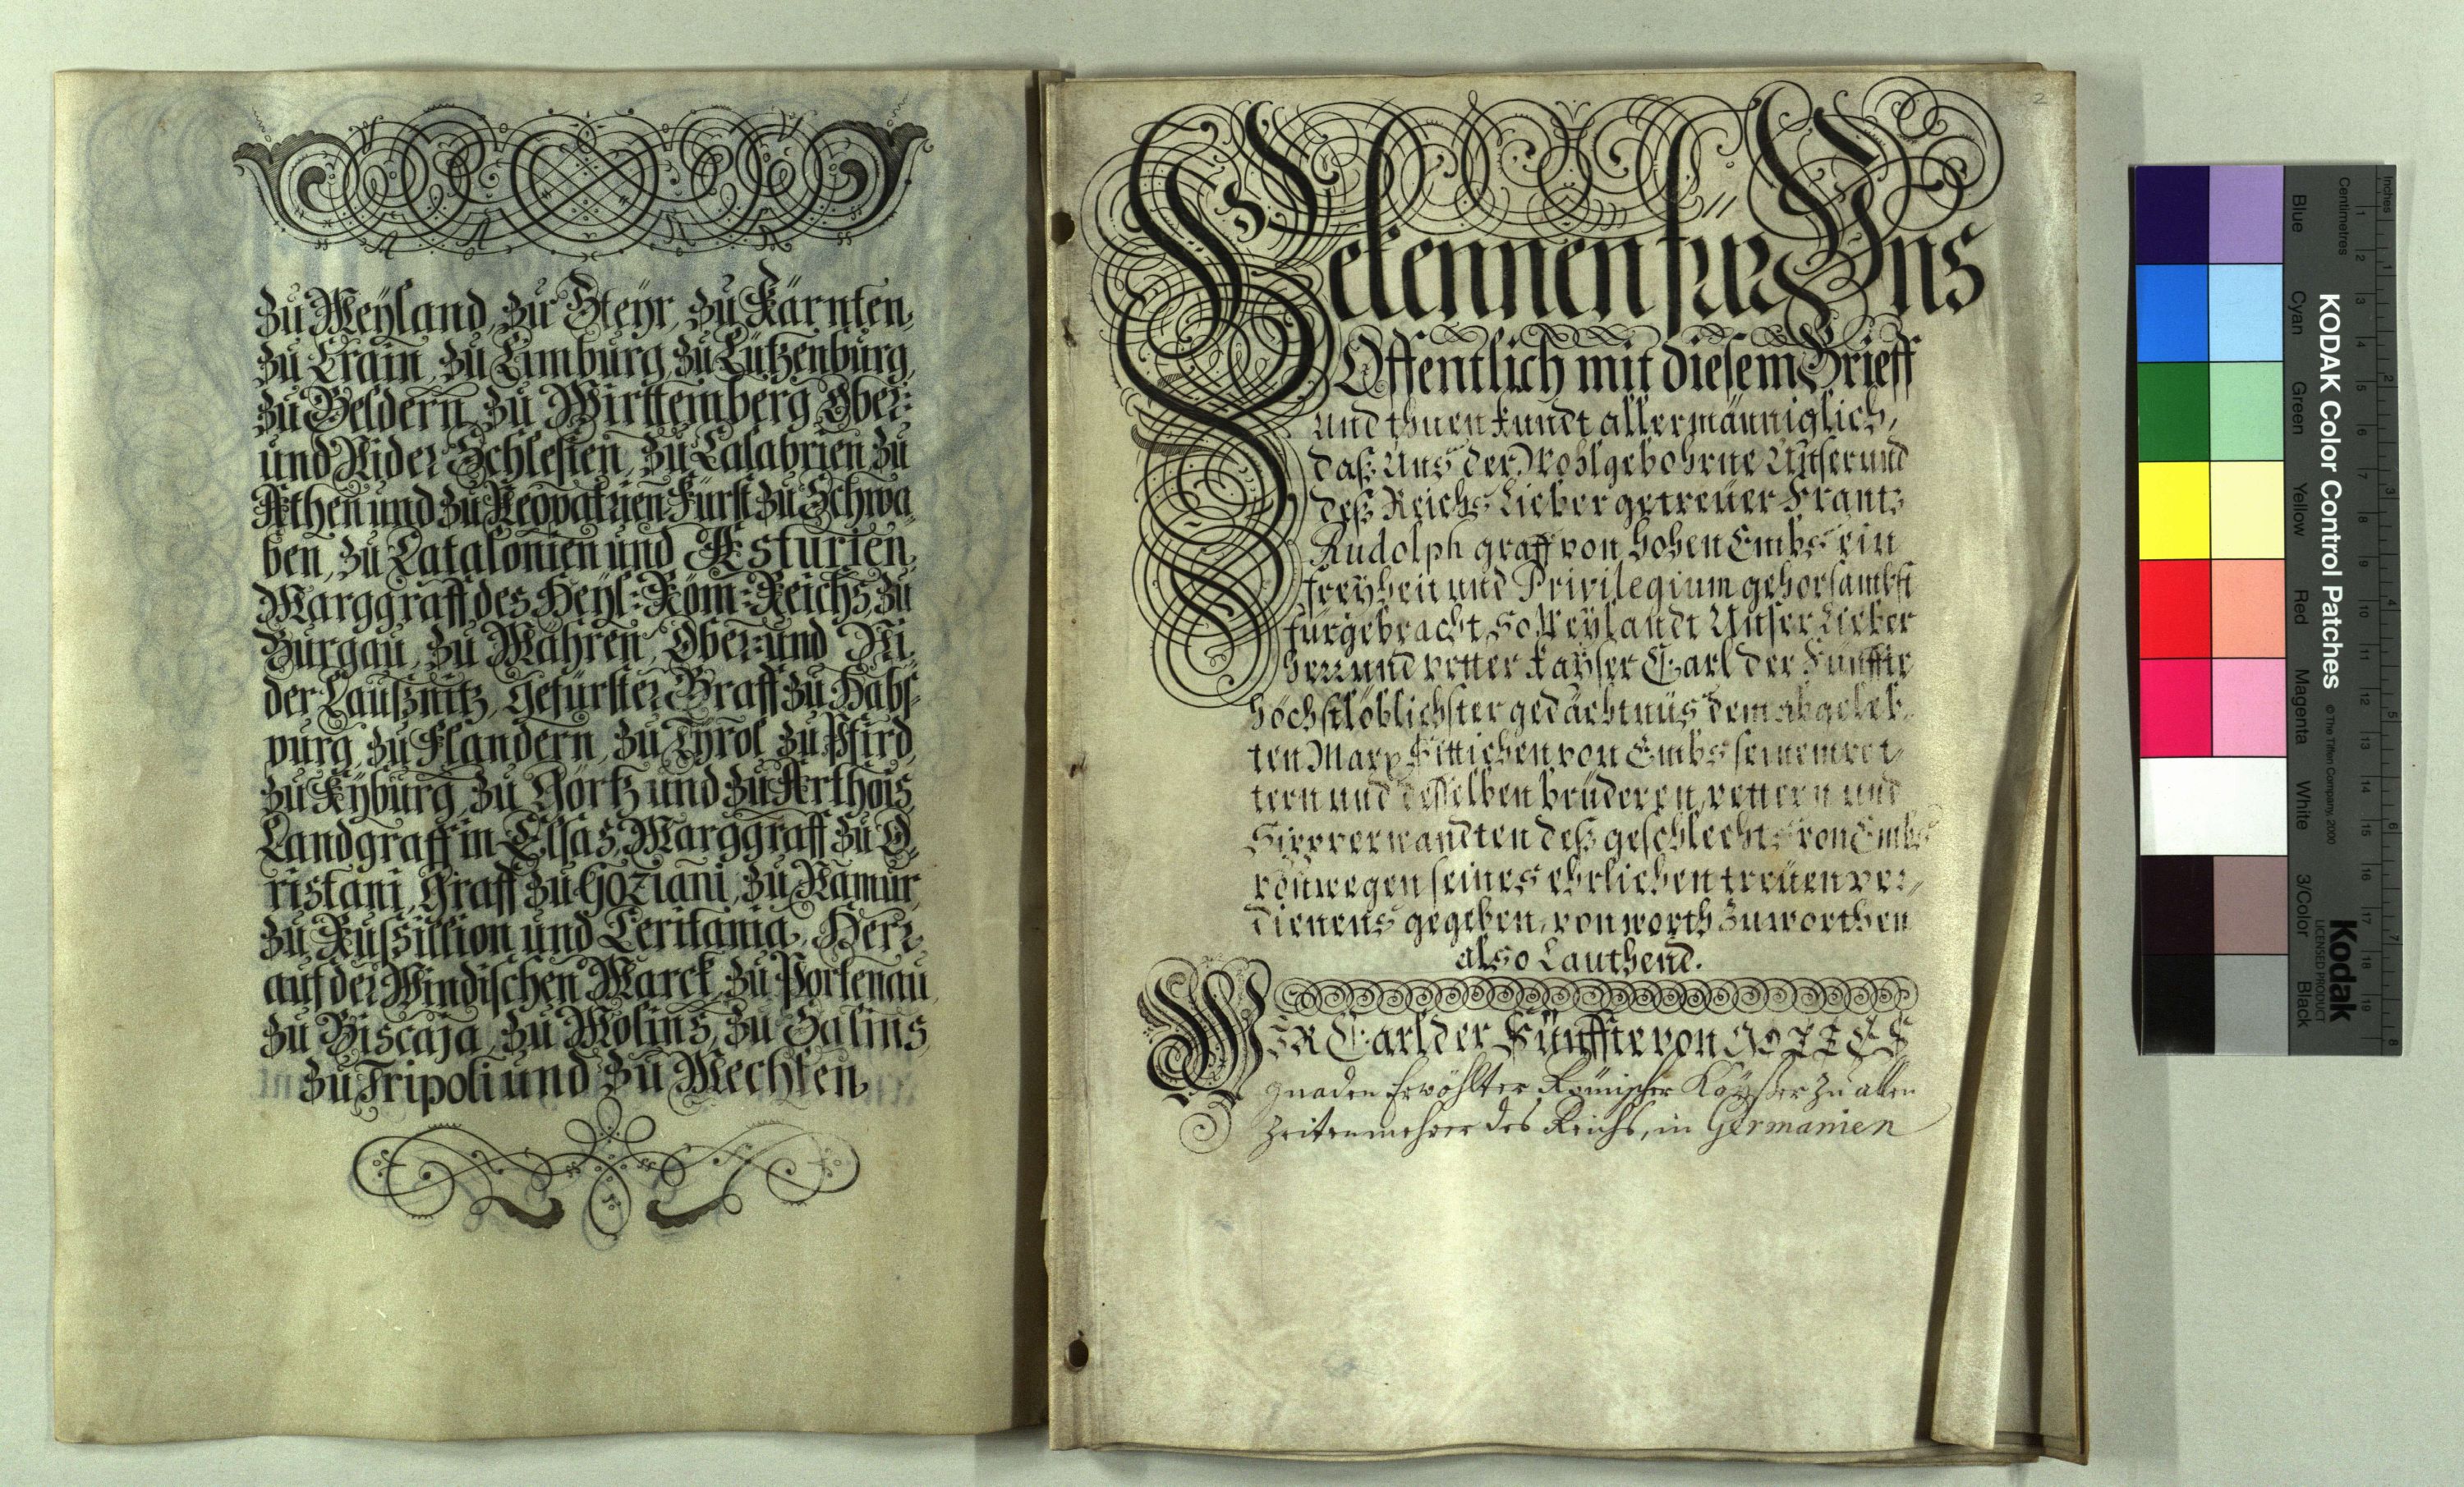 zu Meyland, zur Steyr, zu Kärnten,
zu Crain, zu Limburg, zu Lützenburg,
zu Geldern, zu Wirttemberg, Ober-
und Nider Schlesien, zu Calabrien, zu
Athen und zu Neopatrien Fürst zu Schwa,
ben, zu Catalonien und Asturien,
Marggraff des Heyl: Röm: Reichs, zu
Burgau, zu Mähren, Ober- und Ni,
der Laußnitz, Gefürster Graff zu Habs-
purg, zu Flandern, zu Tyrol, zu Pfird,
zu Kyburg, zu Görtz und zu Arthois,
Landgraff in Elsas, Marggraff zu O,
ristani, Graff zu Goziani, zu Namur,
zu Russillion und Ceritania, Herr
auf der Windischen Marck, zu Portenau,
zu Biscaja, zu Molins, zu Salins,
zu Tripoli und zu Mechlen,
2
Bekennen für Uns
Offentlich mit diesem Brieff
und thuen kundt allermänniglich,
daß Uns der Wohlgebohrne Unser und
deß Reichs Lieber getreüer Frantz
Rudolph graff von Hohen Embs ein
freyheit und Privilegium gehorsambst
fürgebracht, So Weylandt Unser Lieber
Herr und vetter Kayser Carl der Fünffte
höchstlöblichster gedächtnüs dem abgeleb,
ten Marx Sittichen von Embs seinem vet,
tern und desselben brüderen, vettern und
Sippverwandten deß geschlechts von Embs
von wegen seines ehrlichen treüen ver,
dienens gegeben, von worth zu worthen
also Lauthend.
WIR Carl der Fünffte von GOTTES
gnaden Erwöhlter Römischer Kayßer zu allen
Zeiten mehrer des Reichs, in Germanien
Inches
Centimetres
1
2
3
4
5
6
7
8
9
10
11
12
13
14
15
16
17
18
19
1
2
3
4
5
6
7
8
KODAK Color Control Patches
© The Tiffen Company, 2000
Kodak
LICENSED PRODUCT
Blue
Cyan
Green
Yellow
Red
Magenta
White
3/Color
Black